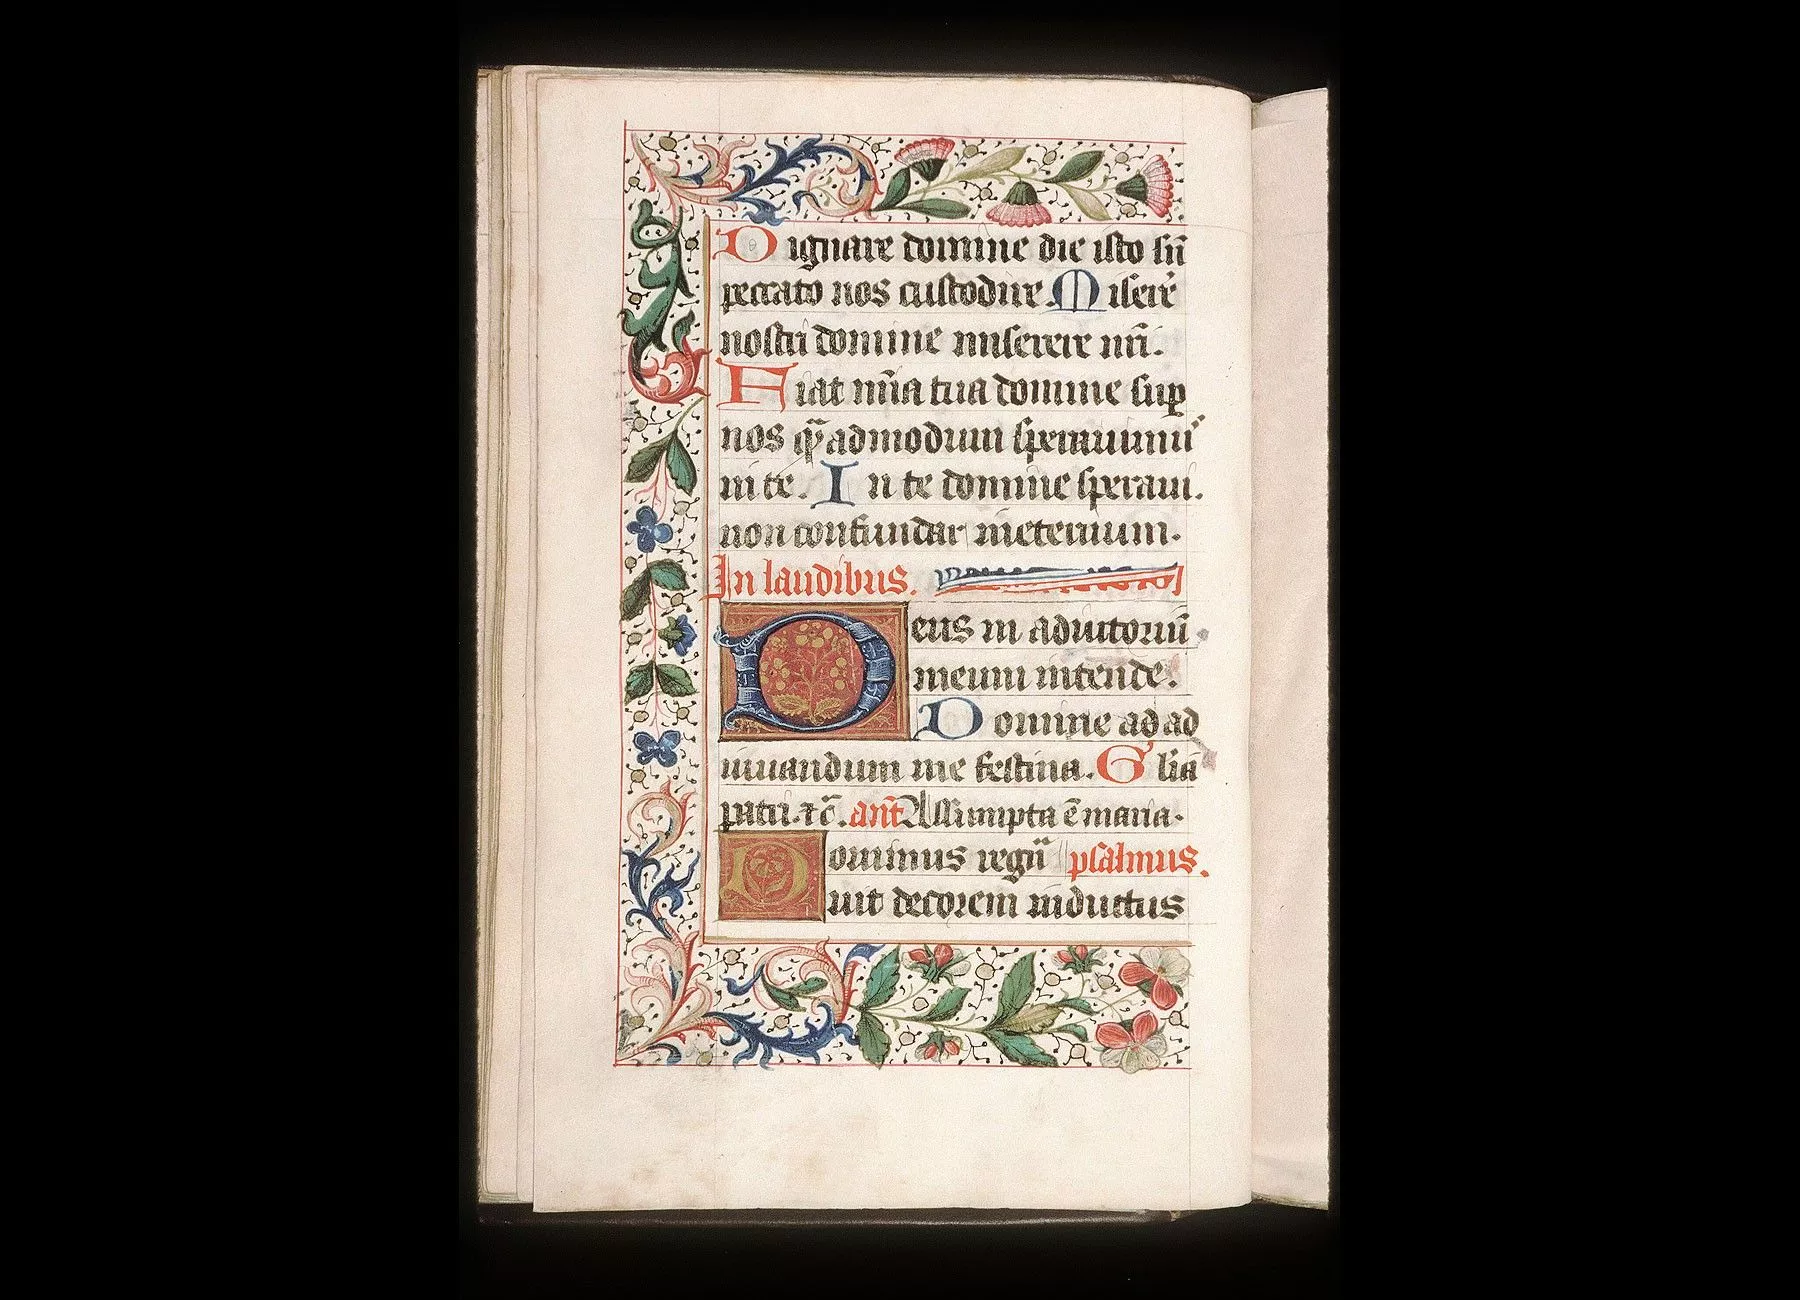 Dignare domine die isto sñ
peccato nos custodire Miserẽ
nostri domine miserere nr̃i.
Fiat mĩa tua domine sup̱
nos qͫadmodum sperauimu᷒
in te. In te domine speraui.
non confundar ineternum.
In laudibus.
Deus in adiutoriũ
meum intende.
Domine ad ad
iuuandum me festina. Glĩa
patri. ⁊c̃. ant̃ Assumpta ẽ maria.
Dominus regñ psalmus.
uit decorem indutus